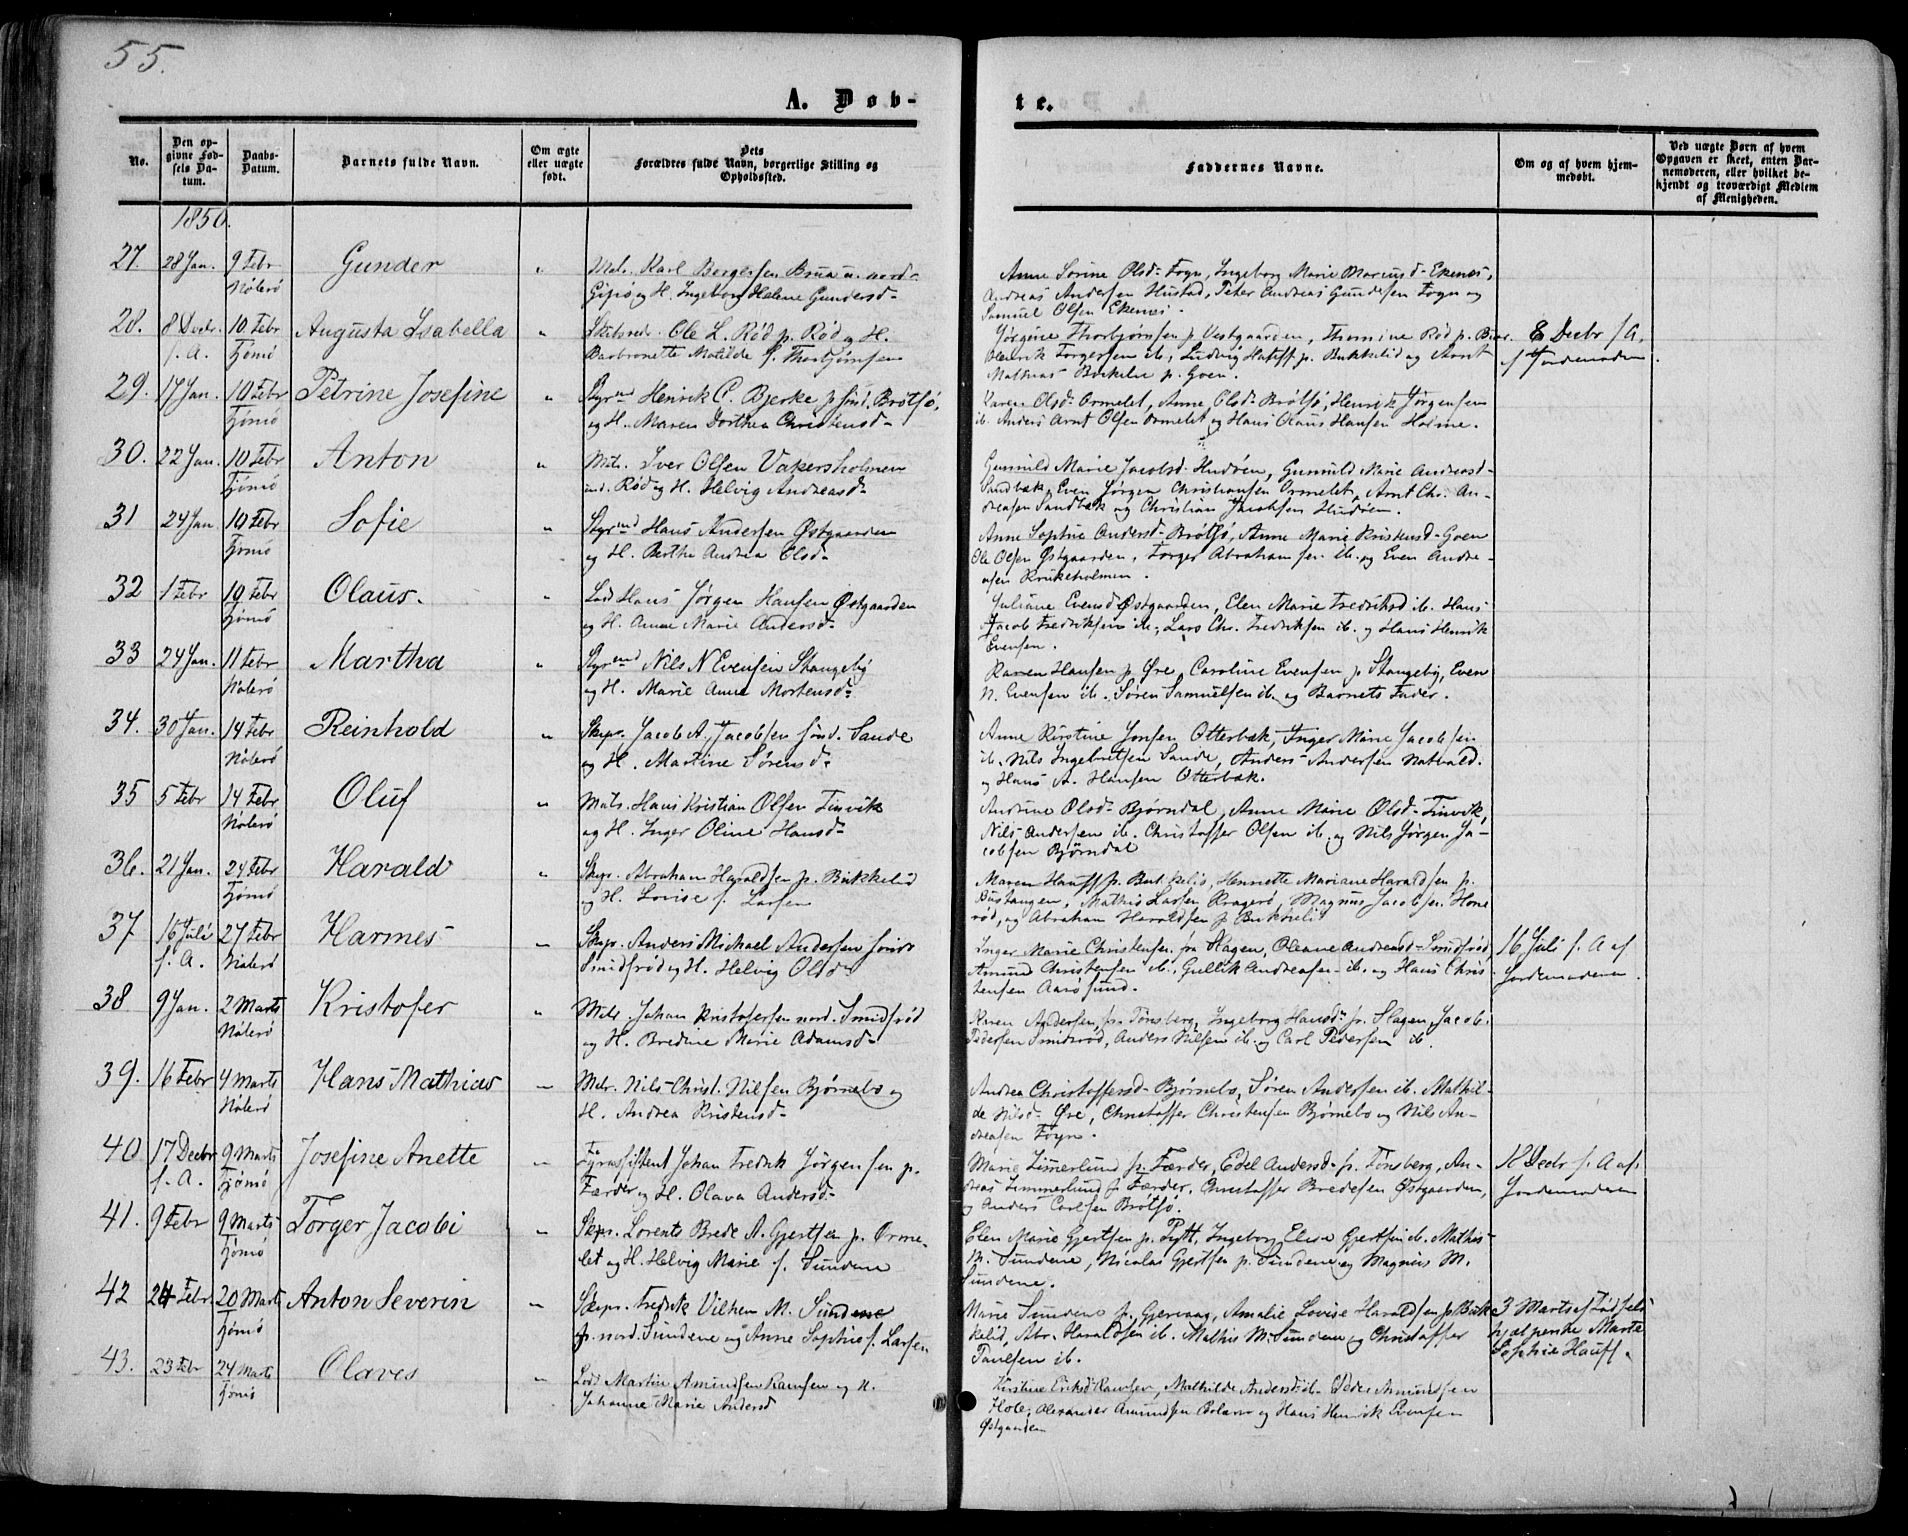 55.
A. Døb-
te.
No.
Den op-
givne Fød-
sels Da-
tum.
Daabs-
Datum.
Barnets fulde Navn.
Om ægte
eller uægte
født.
Dets
Forældres fulde Navn, borgerlige Stilling og
Opholdssted.
Faddernes Navne.
Om og af hvem hjem-
medøbt.
Ved uægte Børn af hvem
Opgaven er skeet, enten Bar-
nemoderen, eller hvilket be-
kjendt og troværdigt Medlem
af Menigheden.
1850.
27. 28 Jan. 9 Febr Gunder " Mats. Karl Bergersen Brua u. nord-
Nøterø Gipø og H. Ingeborg Helene Gundersd-
Anne Sorine Olsd- Fogn, Ingeborg Marie Marcusd- Ekenes,
Andreas Andersen Hustad, Peter Andreas Gundersen Fogn og
Samuel Olsen Ekenes.
28. 8 Decbr. 10 Febr Augusta Isabella " Ole L. Rød p. Rød og H.
f. A. Tjømø Barbronette Matilde f. Thorbjørnsen
Jørgine Thorbjørnsen p. Vestgaarden, Thomine Rød p.
Henrik Torgersen ib, Ludvig Hauff p. Bukkelid og Arnt
Mathias p. Goen.
8 Decbr f. A.
f Jordemoderen.
29. 17 Jan. 10 Febr Petrine Josefine " Styrmd Henrik C. Bjerke p. Sind. Brøtsø,
Tjømø og H. Maren Dorthea Christensd-
Karen Olsd- Ormelet, Anne Olsd- Brøtsø, Henrik Jørgensen
ib. Anders Arnt Olsen Ormelet og Hans Olaus Hansen Holme.
30. 22 Jan. 10 Febr Anton " Mats. Iver Olsen Vakersholmen
Tjømø und. Rød og H. Helvig Andreasd-
Gunnild Marie Jacobsd- Hudøen, Gunnild Marie Andreasd-
Sandbæk, Even Jørgen Christiansen Ormelet, Arnt Chr. An-
dreasen Sandbæk og Christian Jacobsen Hudøen.
31 24 Jan 10 Febr Sofie " Styrmd Hans Andersen Østgaarden
Tjømø og H. Berthe Andrea Olsd-
Anne Sophie Andersd- Brøtsø, Anne Marie Kristensd- Goen
Ole Olsen Østgaarden, Torger Abrahamsen ib. og Even Andre-
asen Krukeholmen.
32 1 Febr 10 Febr Olaus. " Lods Hans Jørgen Hansen Østgaarden
Tjømø og H. Anne Marie Andersd-
Juliane Evensd Østgaarden, Elen Marie Fredriksd ib. Hans
Jacob Fredriksen ib, Lars Chr. Fredriksen ib. og Hans Henrik
Evensen.
33 24 Jan. 11 Febr Martha " Styrmd Nils N Evensen Stangeby
Nøterø og H. Marie Anne Mortensd-
Karen Hansen p. Øre, Caroline Evensen p Stangeby, Even
N. Evensen ib. Søren Samuelsen ib. og Barnets Fader.
34. 30 Jan. 14 Febr Reinhold " Skpr. Jacob A. Jacobsen sønd. Sande
Nøterø og H. Martine Sørensd-
Anne Kirstine Jonsen Otterbæk, Inger Marie Jacobsen
ib. Nils Ingebretsen Sande, Anders Andersen Natvald.
og Hans A. Hansen Otterbæk.
35 5 Febr 14 Febr Oluf " Mats. Hans Kristian Olsen Tinvik
Nøterø og H. Inger Oline Hansd-
Andrine Olsd- Bjørndal, Anne Marie Olsd- Tinvik,
Nils Andersen ib. Christoffer Olsen ib. og Nils Jørgen Ja-
cobsen Bjørndal
36. 21 Jan. 24 Febr Harald " Skpr. Abraham Haraldsen p. Bukkelid
Tjømø og H. Lovise f. Larsen
Maren Hauff p. Bukkelid, Henriette Mariane Haraldsen p.
Bustangen, Mathis Larsen Kragerø, Magnus Jacobsen Hone
rød, og Abraham Haraldsen p Bukkelid
37 16 Juli 27 Febr Harmes " Skpr. Anders Michael Andersen
f. A. Nøterø Smidsrød og H. Helvig Olsd-
Inger Marie Christensen fra Hagen, Oleane Andreasd- Smidsrød,
Amund Christensen ib, Gullik Andreasen ib. og Hans Chris
tensen Aarøsund.
16 Juli f. A af
Jordemoderen.
38 9 Jan. 2 Marts Kristofer " Mats. Johan Kristofersen nord. Smidsrød
Nøterø og H. Bredine Marie Adamsd-
Karen Andersen, fr. Tønsberg, Ingeborg Hansd- fr. Slagen, Jacob
Pedersen Smidsrød, Anders Nilsen ib. og Carl Pedersen ib.
39. 16 Febr 4 Marts Hans Mathias " Mats. Nils Christ. Nilsen Bjørnebo og
Nøterø H. Andrea Kristensd-
Andrea Christoffersd- Bjørnebo, Søren Andersen ib. Mathil-
de Nilsd- Øre, Christoffer Christensen Bjørnebo og Nils An-
dreasen Fogn.
40 17 Decbr 9 Marts Josefine Anette " Fyrassistent Johan Fredrik Jørgensen p.
f. A. Tjømø Færder og H. Olava Andersd-
Marie Zimmerlund p. Færder, Edel Andersd- fr. Tønsberg, An-
dreas Zimmerlund p Færder, Christoffer Bredesen Østgaarden,
og Anders Carlsen Brøtsø.
18 Decbr f. A af
Jordemoderen
41. 9 Febr 9 Marts Torger Jacobi " Skpr. Lorents Brede A. Gjertsen p. Orme-
Tjømø let og H. Helvig Marie f. Sundene
Elen Marie Gjertsen p. Pytt, Ingeborg Elise Gjertsen ib. Mathis
M. Sundene, Nicolai Gjertsen p. Sundene og Magnus M.
Sundene.
42 24 Febr. 20 Marts Anton Severin " Skpr. Fredrik Vilhem M. Sundene
Tjømø p. nord. Sundene og Anne Sophie f. Larsen
Marie Sundene p. Gjervaag, Amalie Lovise Haraldsen p Buk
kelid, Abr. Haraldsen ib. Mathis M. Sundene og Christoffer
Paulsen ib.
3 Marts af Fødsels
hjælperske Marte
Sophie Hauff.
43. 23 Febr 24 Marts Olaves " Lods Martin Amundsen Ramsen og H.
Tjømø Johanne Marie Andersd
Kirstine Eriksd Ramsen, Mathilde Andersd ib- Peder Amundsen
Hole, Alexander Amundsen og Hans Henrik Evensen
Østgaarden